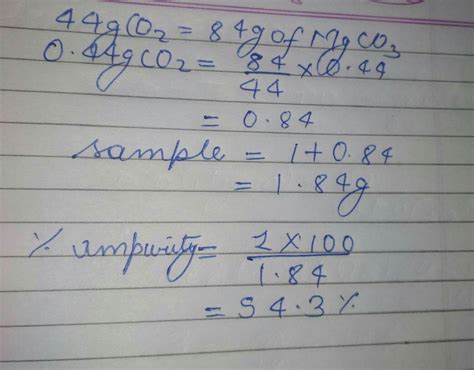 44gCO₂ = 84g of MgCO₃
0.44gCO₂ = 84/44 × 0.44
= 0.84
sample = 1+0.84
= 1.84g
% ampurity = 1×100/1.84
= 54.3%